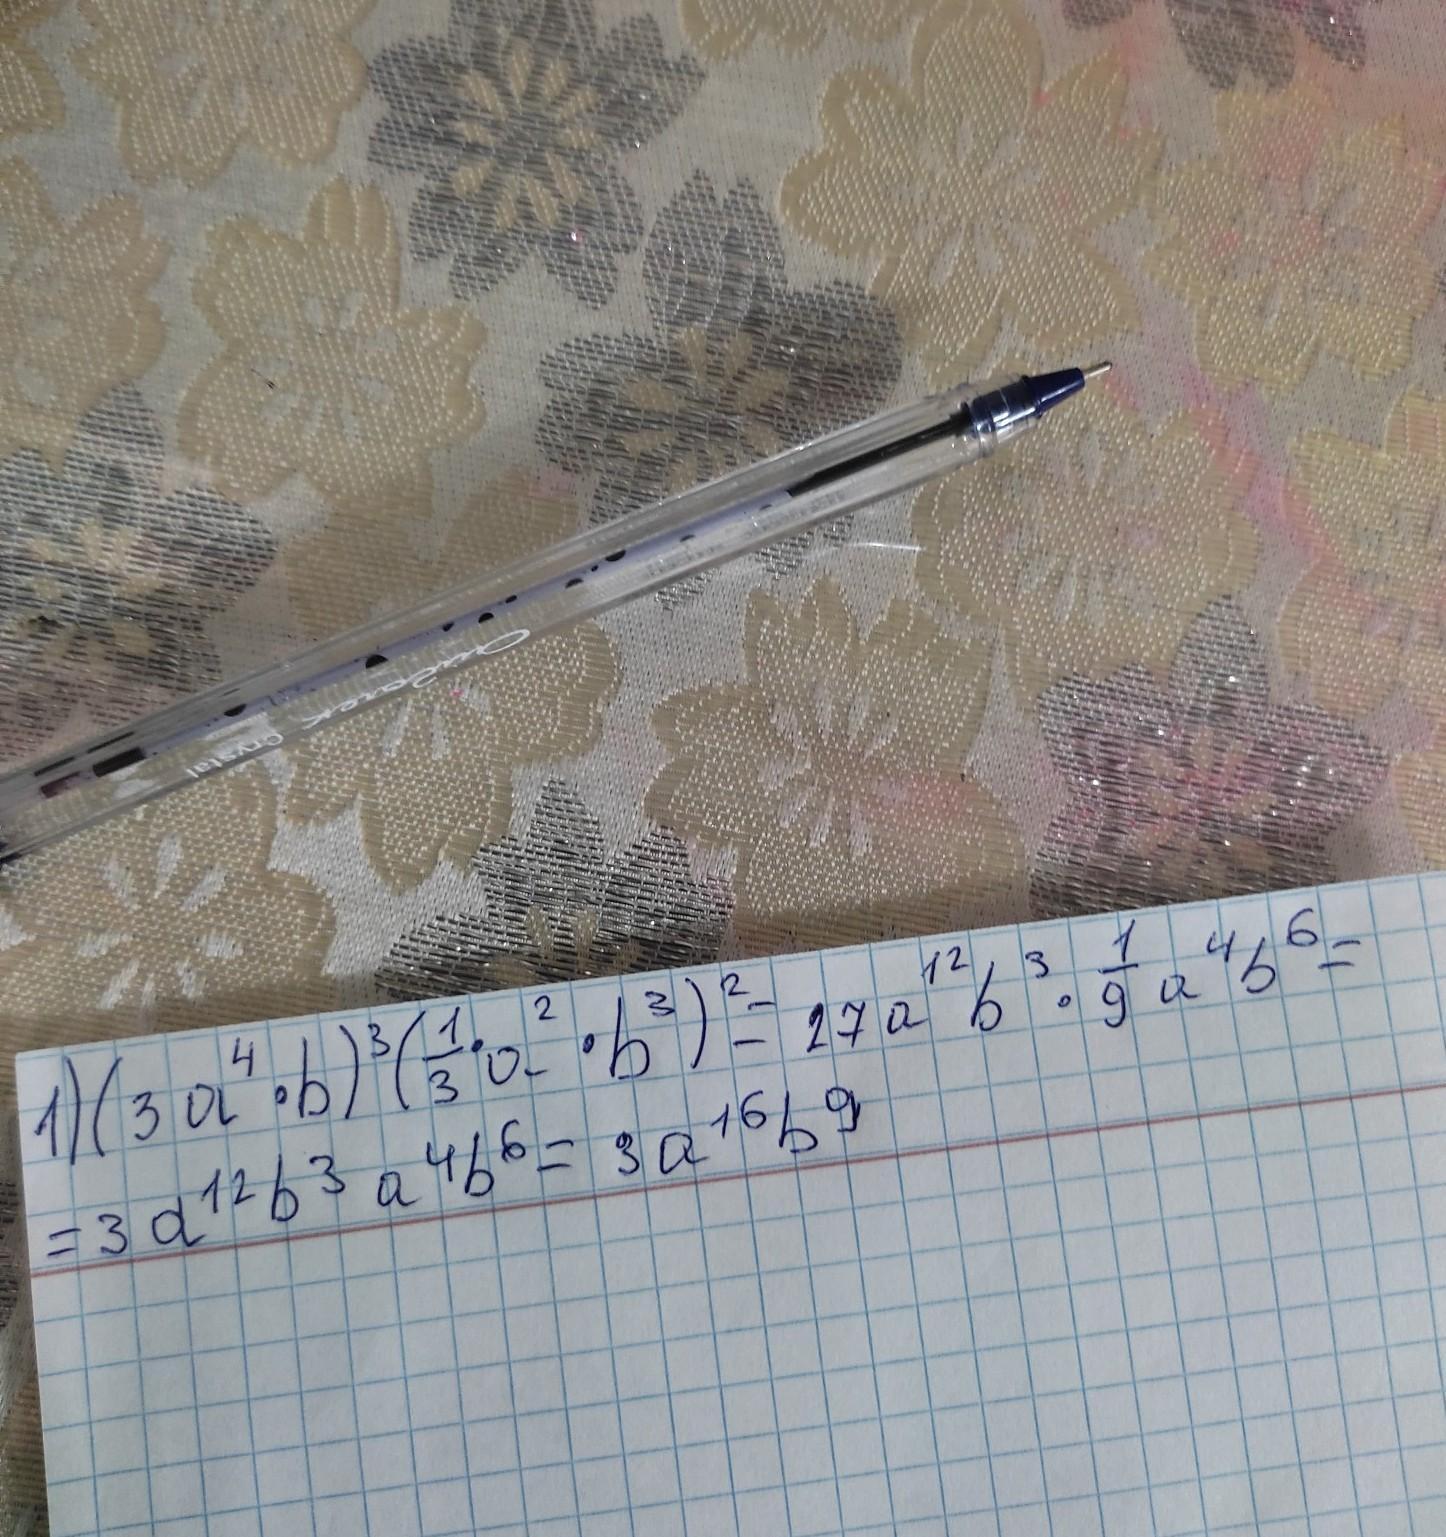 Crystal
1) (3a⁴·b)³(1/3·a²·b³)² = 27a¹²b³·1/9a⁴b⁶=
=3a¹²b³a⁴b⁶=3a¹⁶b⁹